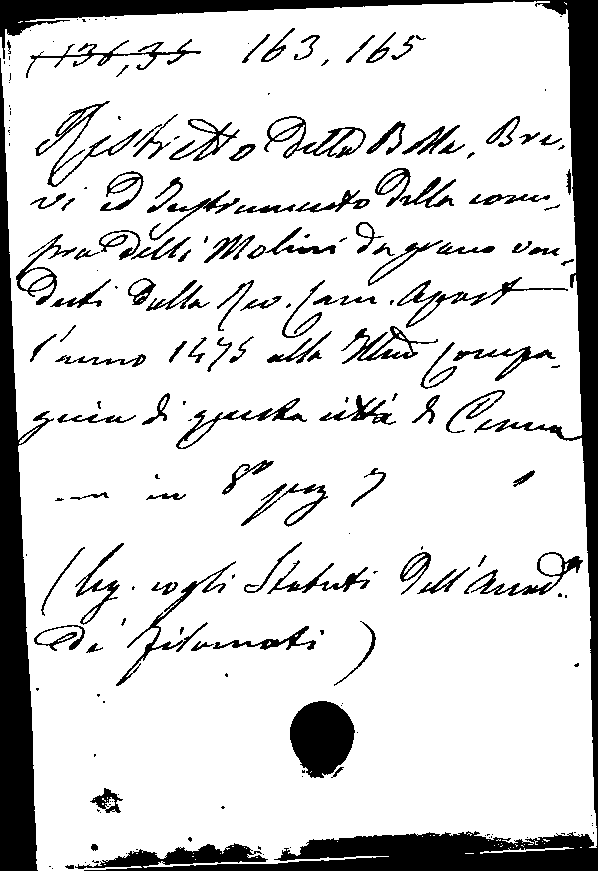 136,35 163,165
Ristretto della Bolla, Bre-
vi ed Instrumento della com-
pra delli Molini da grano ven-
duti dalla Rev. Cam. Apost
l'anno 1475 alla Illma Compa-
gnia di questa città di Cesena
in 8° pag 7
(leg. cogli Statuti dell'Accad.a
de' Filomati)